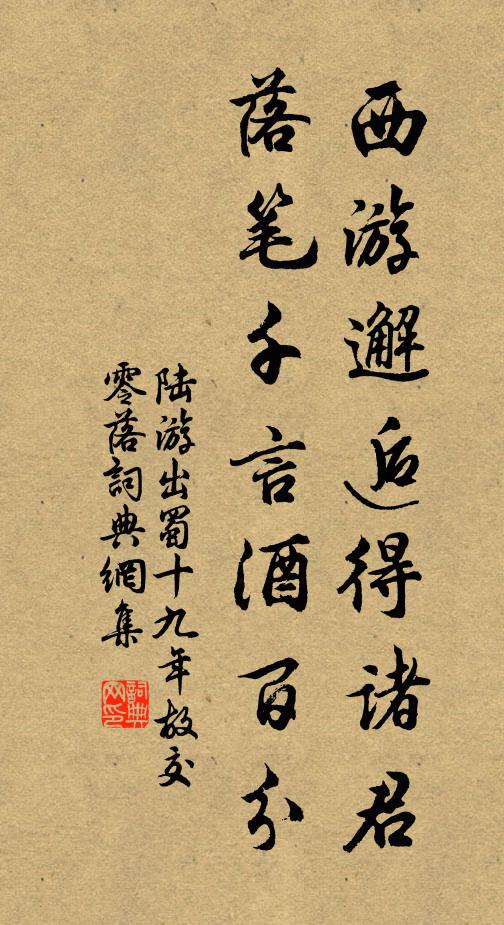 西游邂逅得诸君
落笔千言酒百分
陆游出蜀十九年故交
零落詞典網集
詞典网印